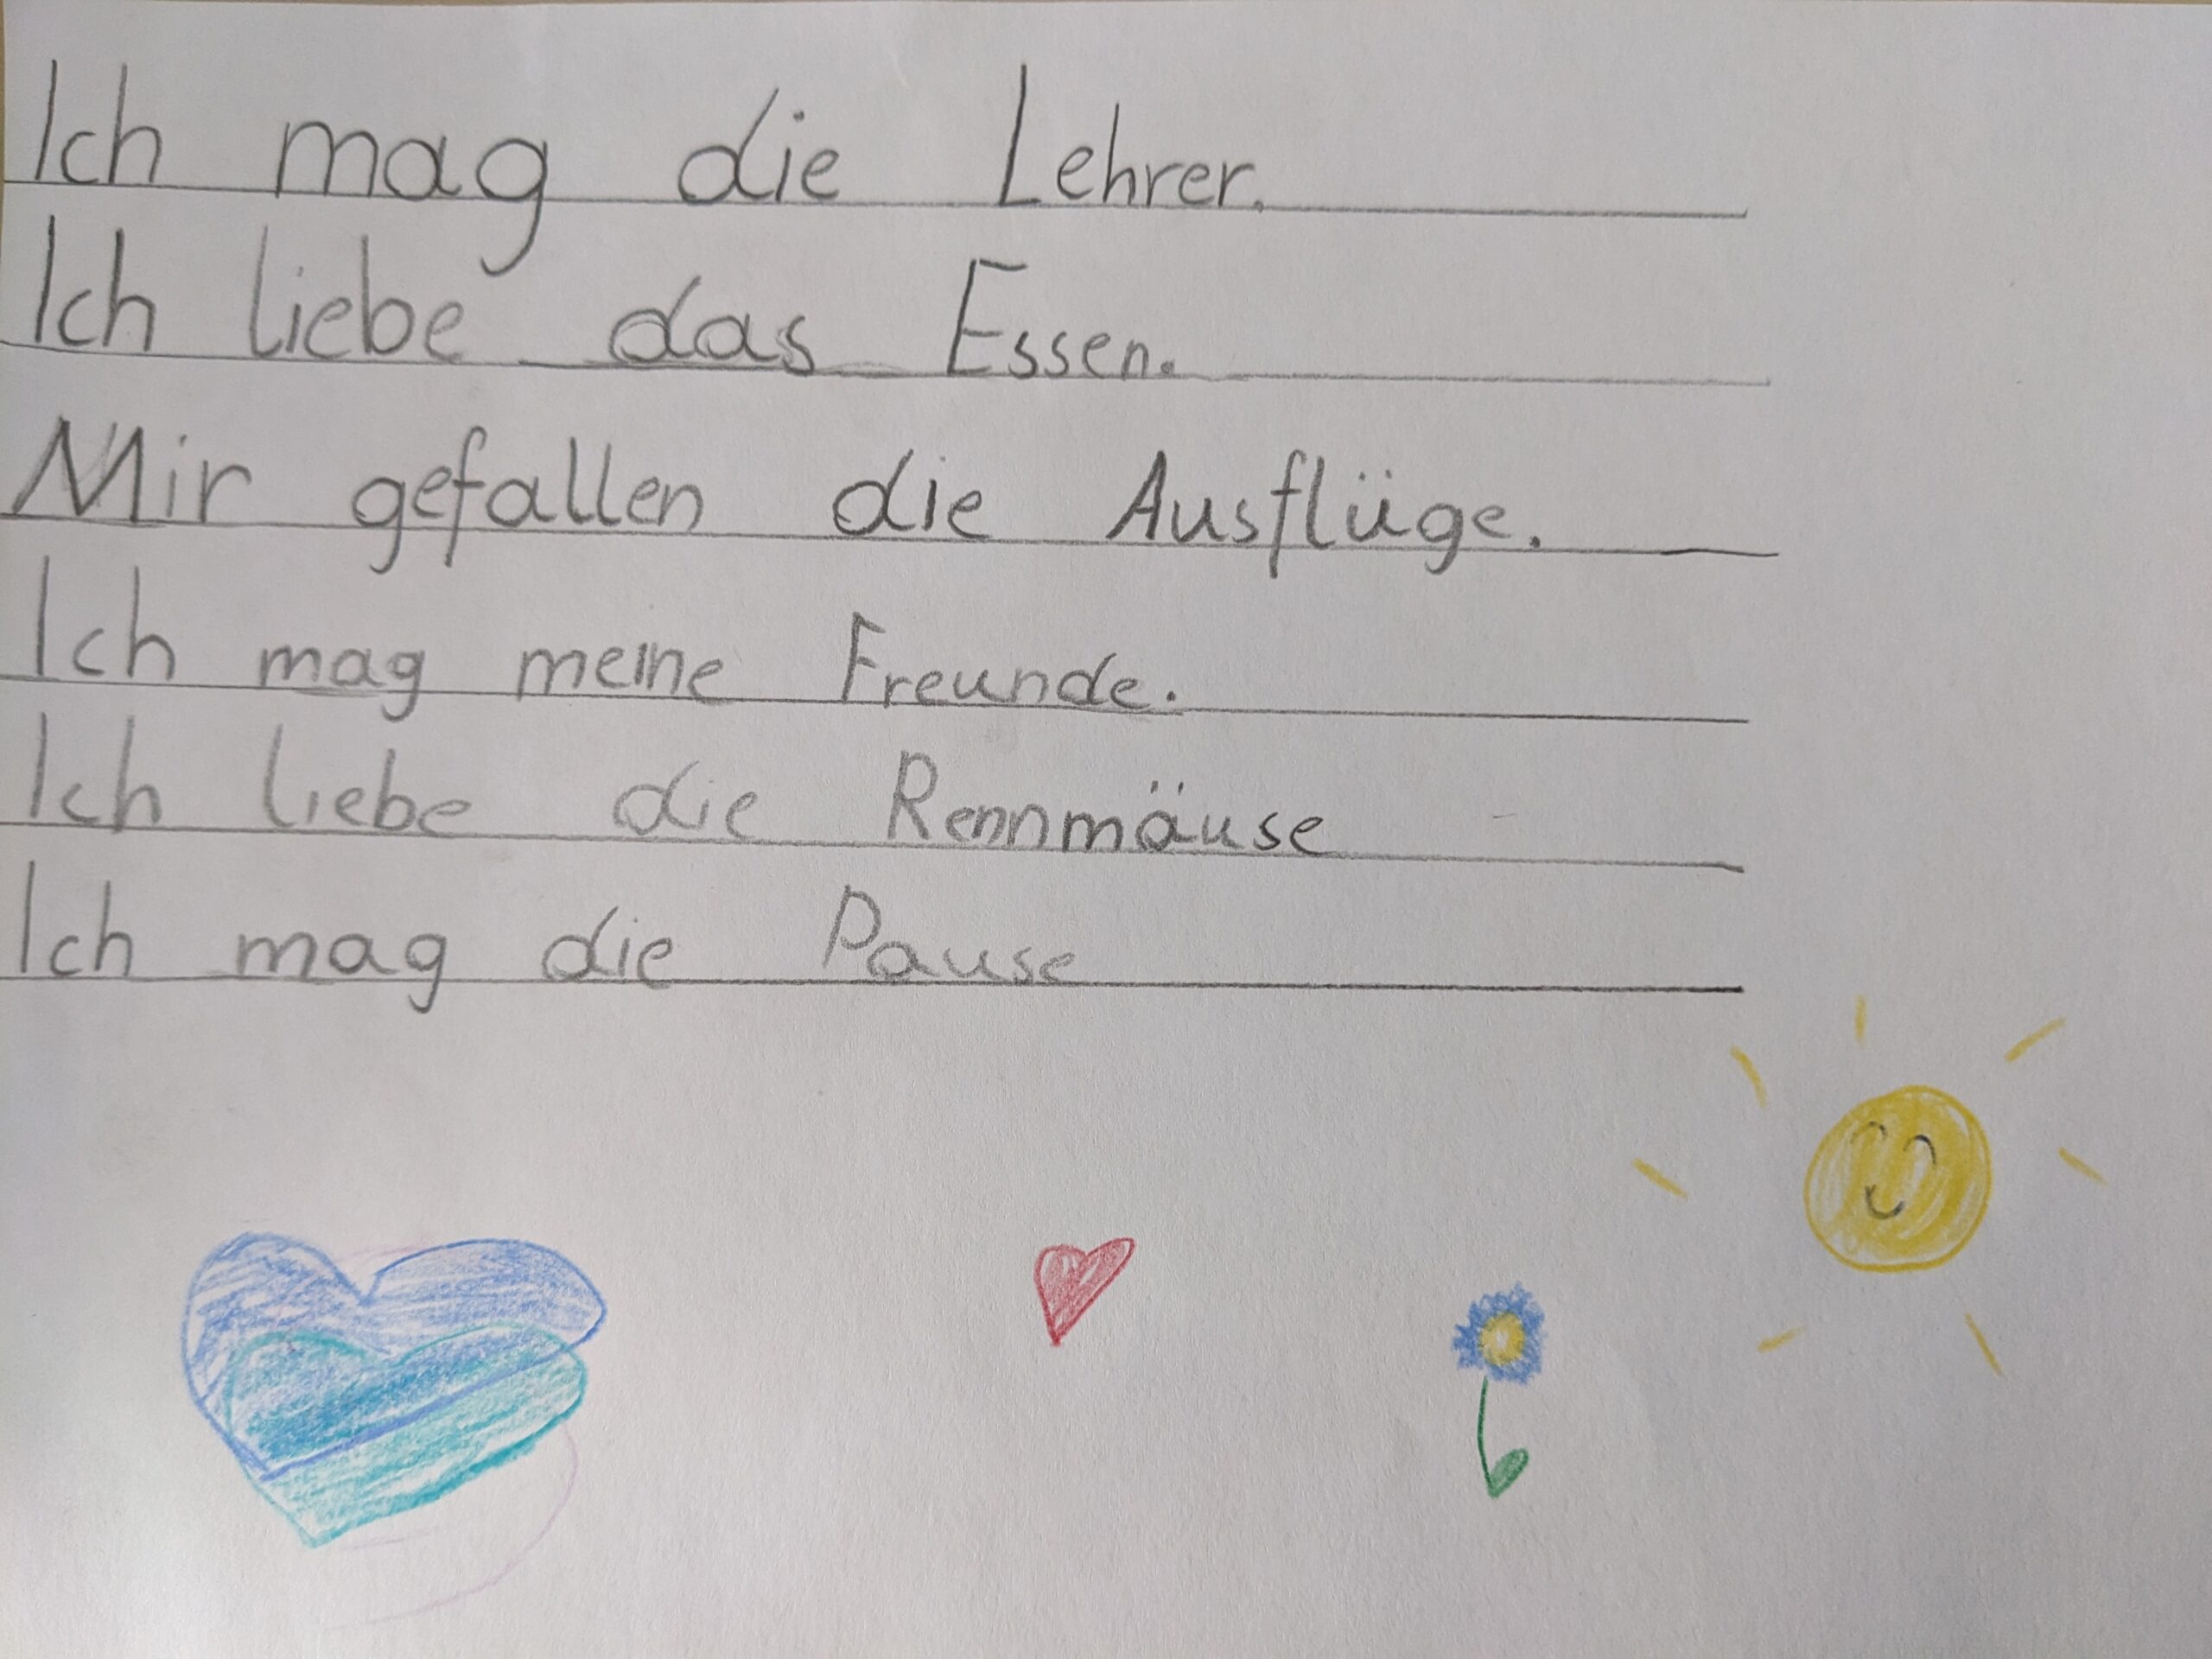 Ich mag die Lehrer.
Ich liebe das Essen.
Mir gefallen die Ausflüge.
Ich mag meine Freunde.
Ich liebe die Rennmäuse
Ich mag die Pause